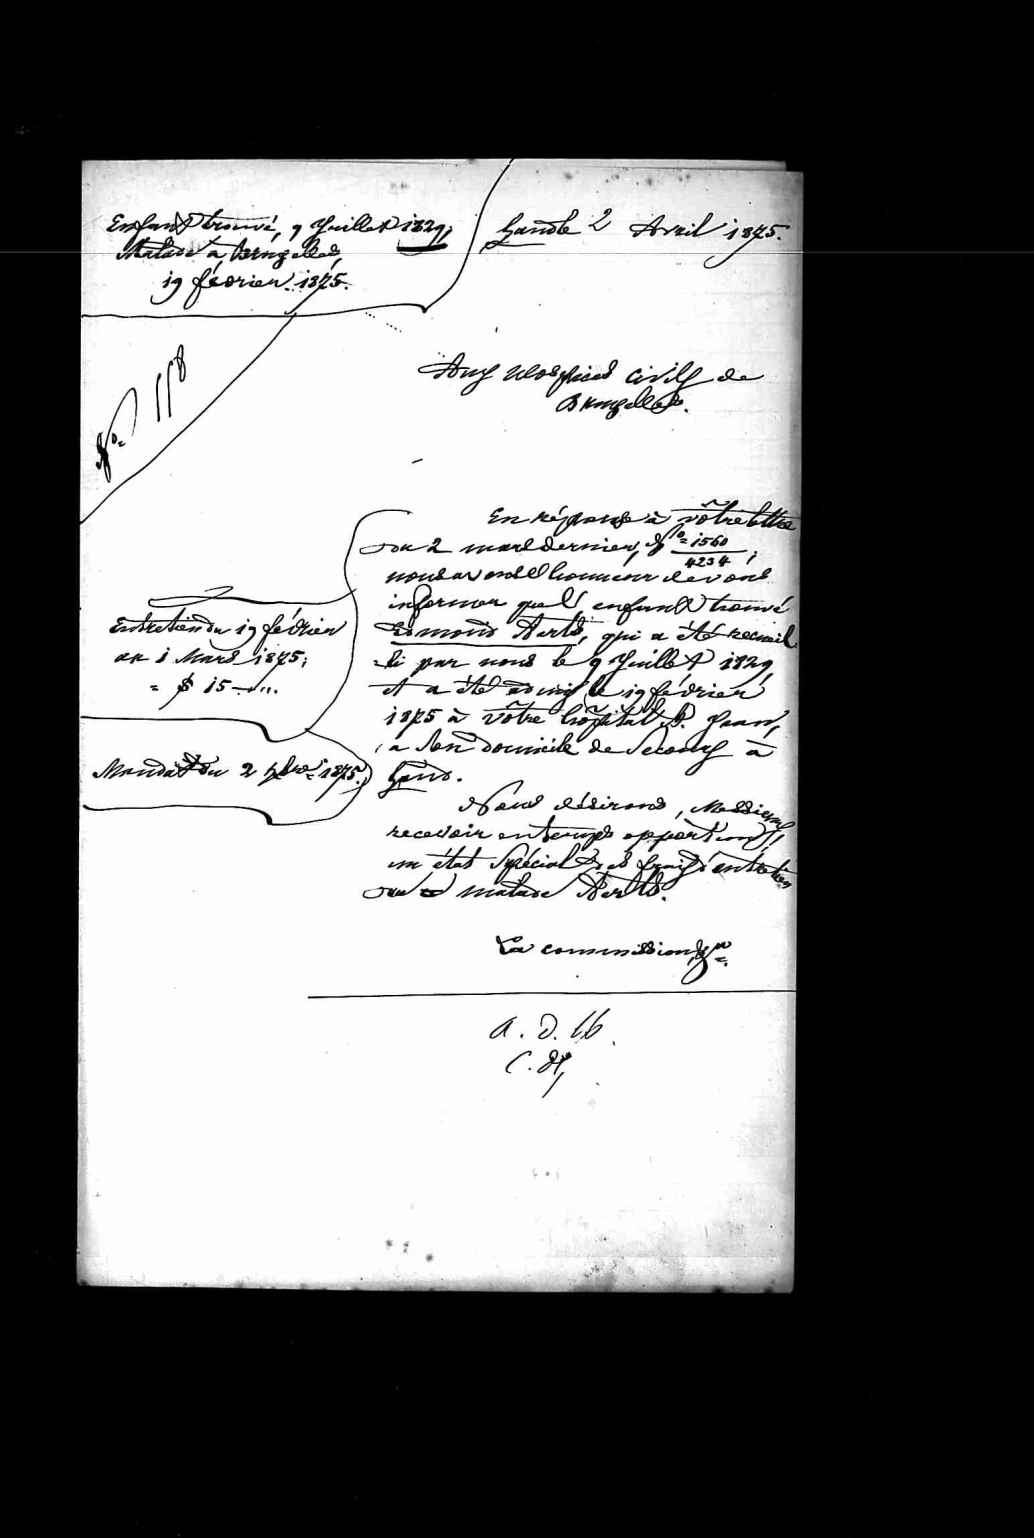 Enfant trouvé, 9 Juillet 1829,
Malade à Bruxelles,
19 février 1875.
Gand le 2 Avril 1875.
N° 158
Aux Hospices civils de
Bruxelles.
En réponse à vôtre lettre
du 2 mars dernier, N° 1560/4234,
nous avons l'honneur de vous
informer que l'enfant trouvé
Edmond Aerts, qui a été recueil
-li par nous le 9 Juillet 1829,
et a été admis le 19 février
1875 à vôtre hôpital St. Jean,
a son domicile de secours à
Gand.
Entretien du 19 février
au 1 Mars 1875;
= 15
Mandat du 2 1875.
Nous désirons, Messieurs,
recevoir en temps opportun,
un état spécial des frais d'entretien
du malade Aerts.
La commission,
A. D.